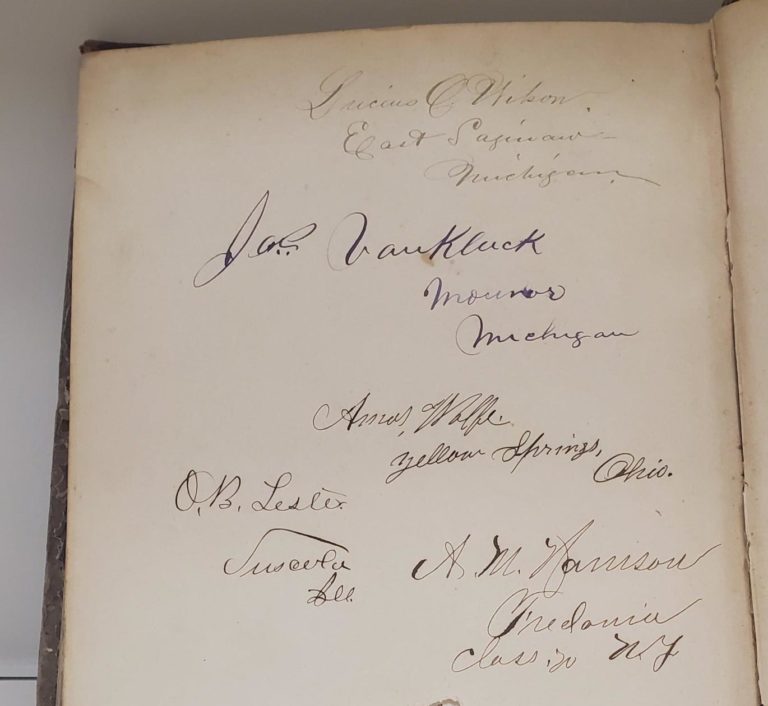 Lucius C. Wilson.
East Saginaw
Michigan.
Jas. VanKluck
Monroe
Michigan
Amos Wolfe.
Yellow Springs,
Ohio.
O. B. Lester
Tuscola
Ill.
A. M. Harrison
Fredonia
Class, 70 N.Y